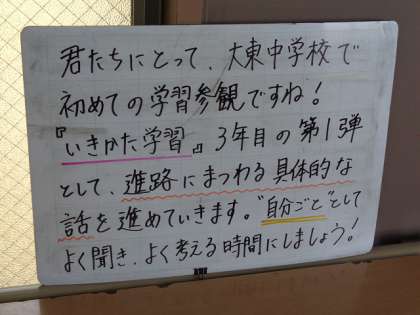 君たちにとって、大東中学校で
初めての学習参観ですね!
『いきかた学習』3年目の第1弾
として、進路にまつわる具体的な
話を進めていきます。"自分ごと"として
よく聞き、よく考える時間にしましょう!